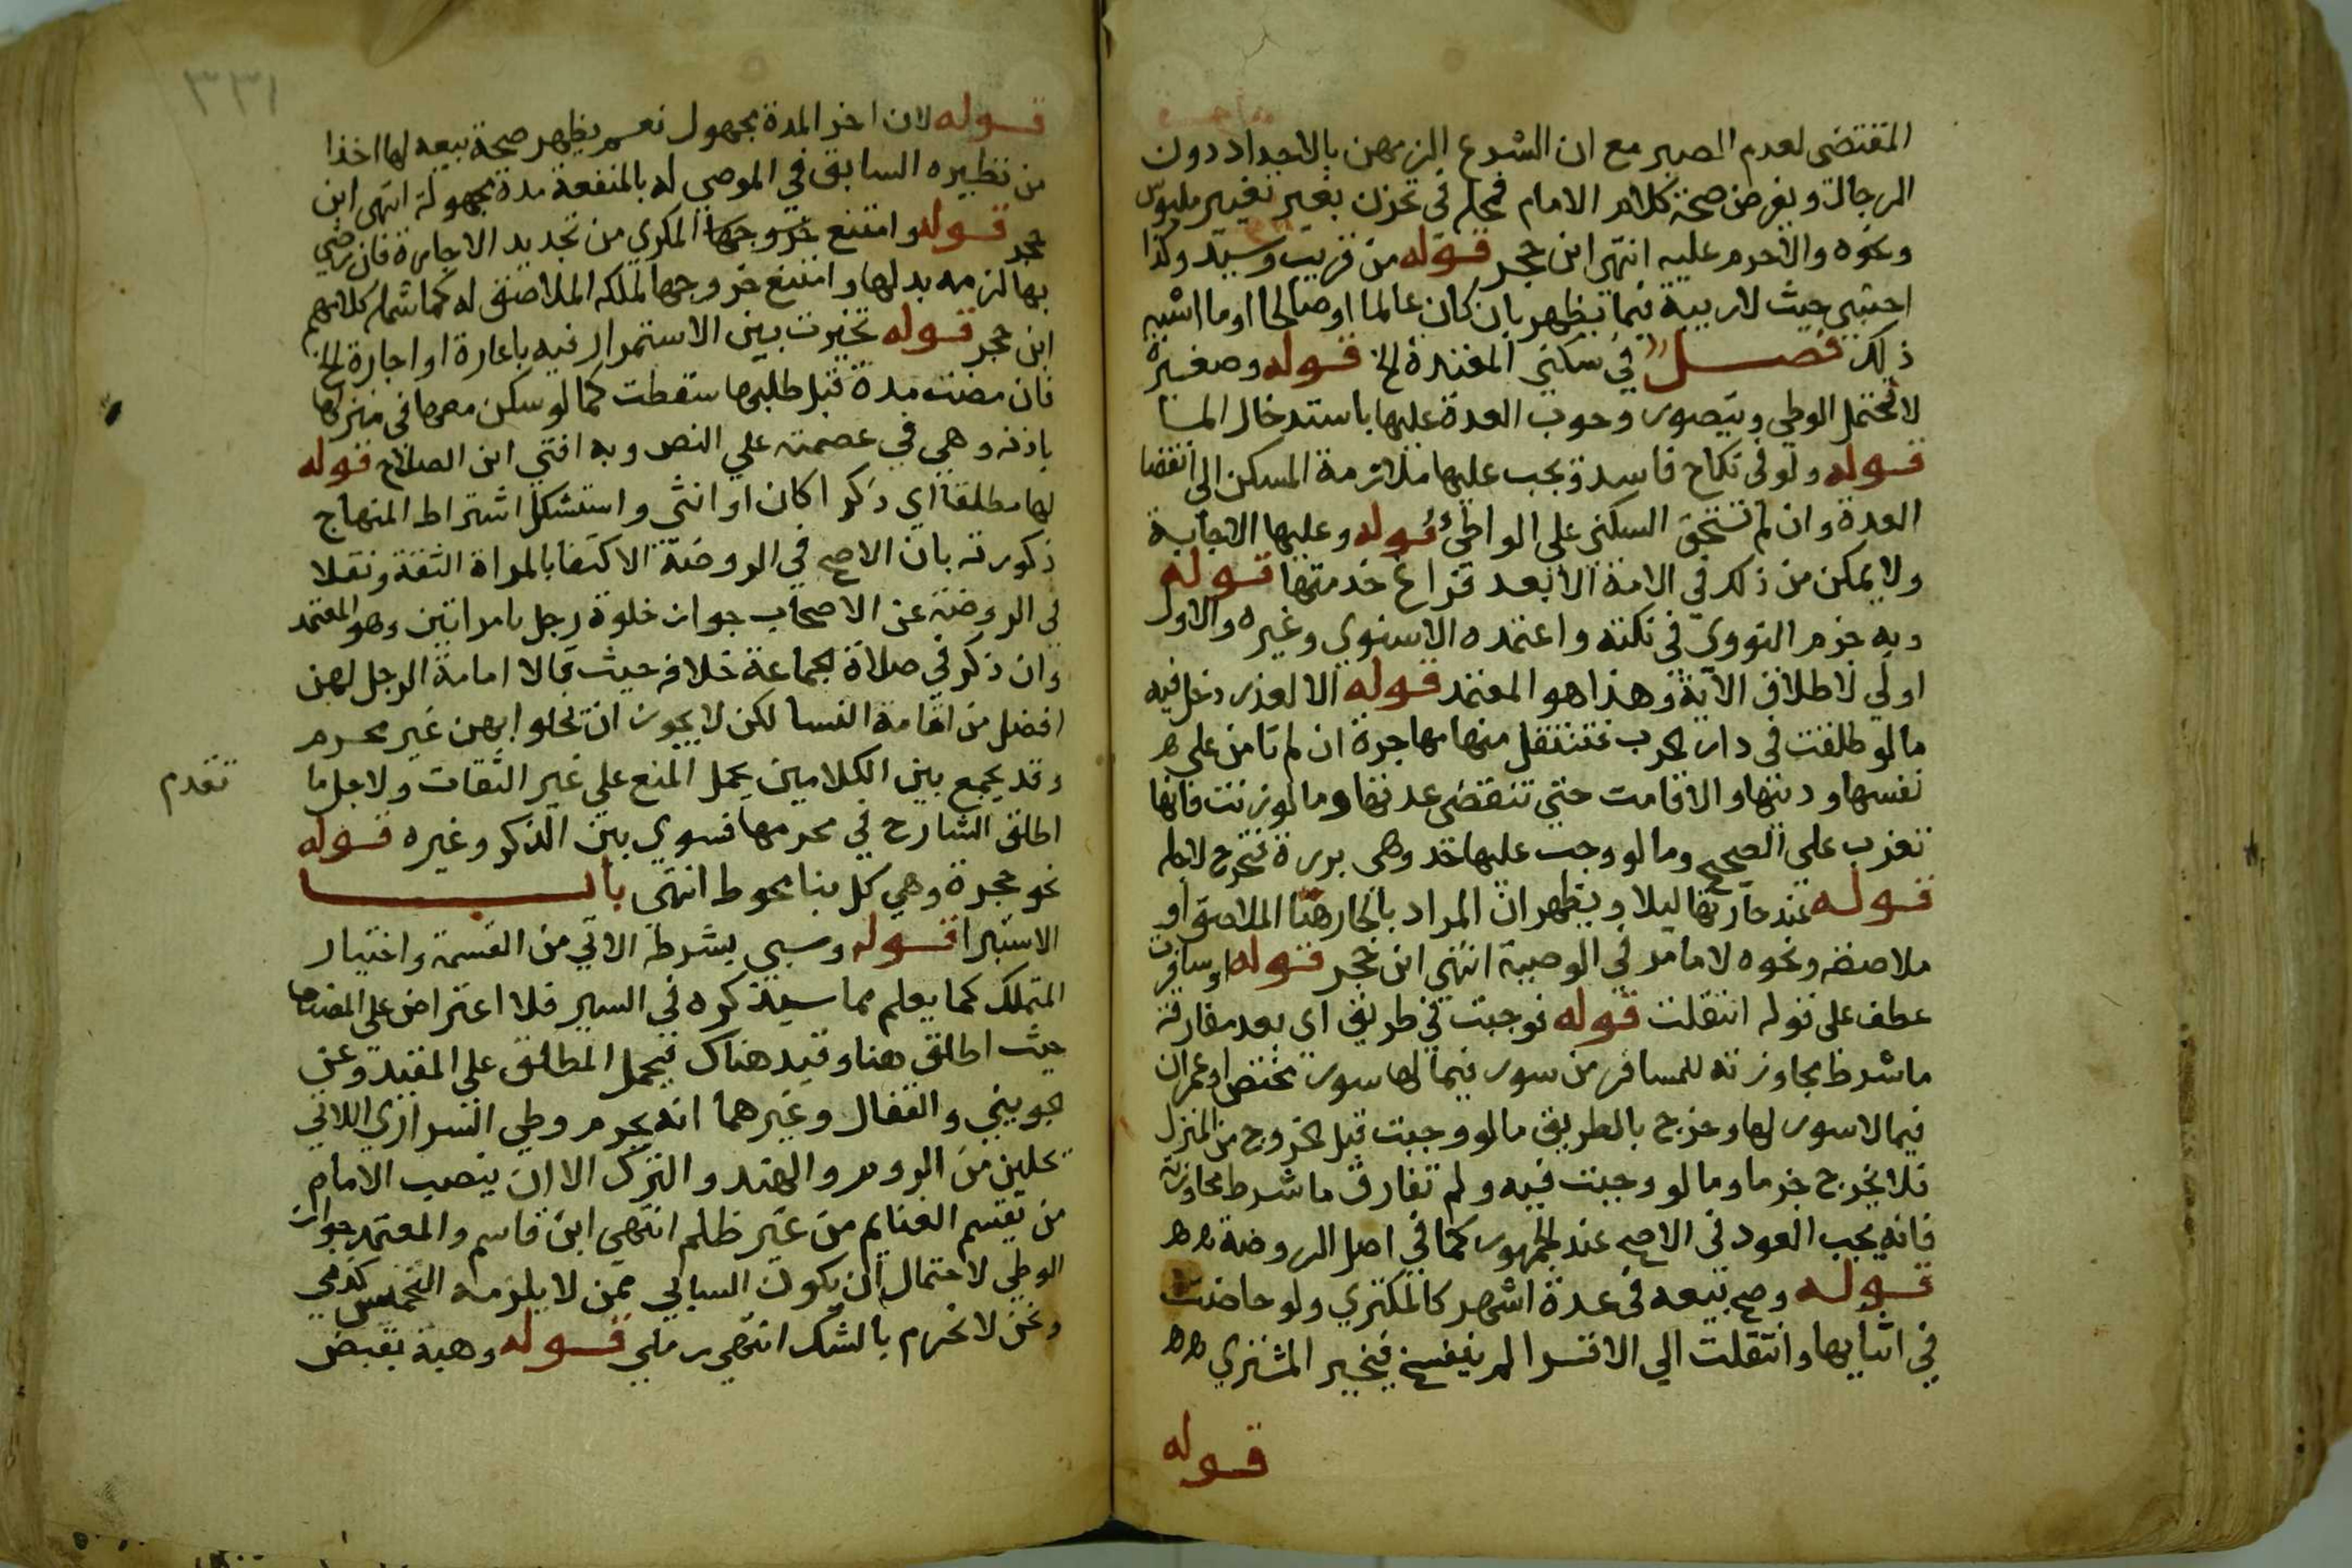 المقتضى لعدم الصبر مع ان الشرع الزمهن بالاحداد دون
الرجال وبفرض صحة كلام الامام فمحله فى تحزن بغير تغيير ملبوس
ونحوه والاحرم عليه انتهى ابن حجر قوله من قريب وسيد وكذا
اجنبى حيث لاريبة فيما يظهر بان كان عالما اوصالحا اوما اشبه
ذلك فصل في سكني المعتدة الخ قوله وصغيرة
لا تحتمل الوطي ويتصور وجوب العدة عليها باستدخال الما
قوله ولو فى نكاح فاسد ويجب عليها ملازمة المسكن الى انقضا
العدة وان لم تستحق السكنى على الواطئ قوله وعليها الاجابة
ولا يمكن من ذلك في الامة الا بعد فراغ خدمتها قوله
وبه جزم النووي فى نكته واعتمده الاسنوي وغيره والاول
اولي لاطلاق الاية وهذا هو المعتمد قوله الا لعذر دخل فيه
مالو طلقت فى دار الحرب فتنتقل منها مهاجرة ان لم تامن على
نفسها ودينها والا اقامت حتي تنقضى عدتها ومالو زنت فانها
تغرب علي الصحيح ومالو وجب عليها حد وهى برزة فتخرج لاجله
قوله عند جارتها ليلا ويظهر ان المراد بالجار هنا الملاصق او
ملاصقه ونحوه لا مامر في الوصية انتهى ابن حجر قوله او سافرت
عطف على قوله انتقلت قوله فوجبت في طريق اى بعد مفارقة
ماشرط مجاوزته للمسافر من سور فيما لها سور مختص او عمران
فيما لاسور لها وخرج بالطريق مالو وجبت قبل الخروج من المنزل
فلا يخرج جزما ومالو وجبت فيه ولم تفارق ماشرط مجاوزته
فانه يجب العود فى الاصح عند الجمهور كما فى اصل الروضة
قوله وصح بيعه فى عدة اشهر كالمكتري ولو حاضت
في اثنايها وانتقلت الي الاقرا لم ينفسخ فيخير المشتري
قوله
٣٣١
قوله لان اخر المدة مجهول نعم يظهر صحة بيعه لها اخذا
من نظيره السابق في الموصى له بالمنفعة مدة مجهولة انتهى ابن
حجر قوله وامتنع خروجها المكري من تجديد الاجارة فان رضي
بها لزمه بدلها وامتنع خروجها لملكه الملاصق له كما شمله كلامهم
ابن حجر قوله تخيرت بين الاستمرار فيه باعارة او اجارة الخ
فان مضت مدة قبل طلبها سقطت كما لو سكن معها فى منزلها
باذنه وهي في عصمته علي النص وبه افتي ابن الصلاح قوله
لها مطلقا اي ذكرا كان او انثي واستشكل اشتراط المنهاج
ذكورته بان الاصح في الروضة الاكتفا بالمراة الثقة ونقلا
في الروضة عن الاصحاب جواز خلوة رجل بامراتين وهو المعتمد
وان ذكر في صلاة الجماعة خلافه حيث قالا امامة الرجل لهن
افضل من اقامة النسا لكن لا يجوز ان تخلوا بهن غير محرم
وقد يجمع بين الكلامين بحمل المنع علي غير الثقات ولاجل ما
تقدم
اطلق الشارح في محرمها فسوي بين الذكر وغيره قوله
نحو حجرة وهي كل بنا محوط انتهى باب
الاستبرا قوله وسبي بشرطه الاتي من القسمة واختيار
المتملك كما يعلم مما سيذكره في السير فلا اعتراض على المص
حيث اطلق هنا وقيد هناك فيحمل المطلق على المقيد وعن
الجويني والقفال وغيرهما انه يحرم وطي السراري اللاتي
تجلبن من الروم والهند والترك الا ان ينصب الامام
من يقسم الغنايم من غير ظلم انتهى ابن قاسم والمعتمد جواز
الوطي لاحتمال ان يكون السابي ممن لا يلزمه التخميس كذمي
ونحن لا نحرم بالشك انتهى رملي قوله وهبة بقبض